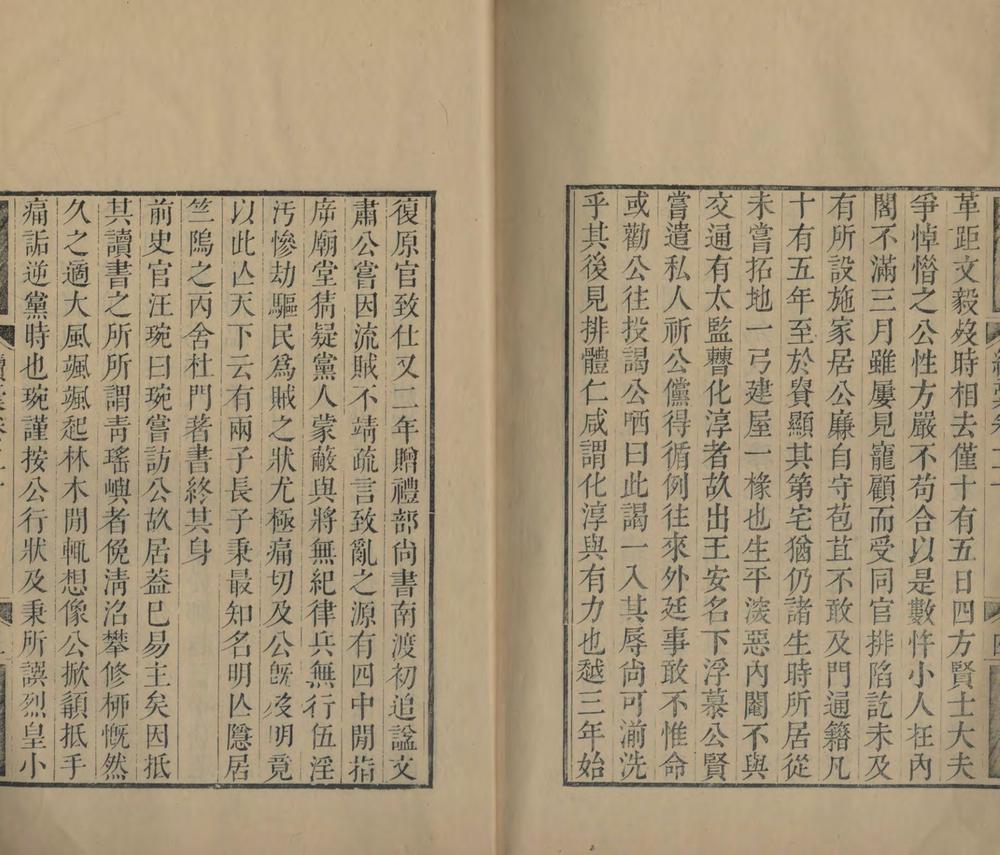 革距文毅歿時相去僅十有五日四方賢士大夫
爭悼惜之公性方嚴不苟合以是數忤小人在內
閣不滿三月雖屢見寵顧而受同官排陷訖未及
有所設施家居公廉自守苞苴不敢及門通籍凡
十有五年至於貴顯其第宅猶仍諸生時所居從
未嘗拓地一弓建屋一椽也生平深惡內閹不與
交通有太監曹化淳者故出王安名下浮慕公賢
嘗遣私人祈公儻得循例往來外廷事敢不惟命
或勸公往投謁公哂曰此謁一入其辱尙可湔洗
乎其後見排體仁咸謂化淳與有力也越三年始
復原官致仕又二年贈禮部尙書南渡初追諡文
肅公嘗因流賊不靖疏言致亂之源有四中閒指
席廟堂猜疑黨人蒙蔽與將無紀律兵無行伍淫
汚慘劫驅民爲賊之狀尤極痛切及公旣歿明竟
以此亾天下云有兩子長子秉最知名明亾隱居
竺隖之丙舍杜門著書終其身
前史官汪琬曰琬嘗訪公故居葢已易主矣因抵
其讀書之所所謂靑瑤嶼者俛淸沼攀修栁慨然
久之適大風颯颯起林木閒輒想像公掀顙抵手
痛詬逆黨時也琬謹按公行狀及秉所譔烈皇小